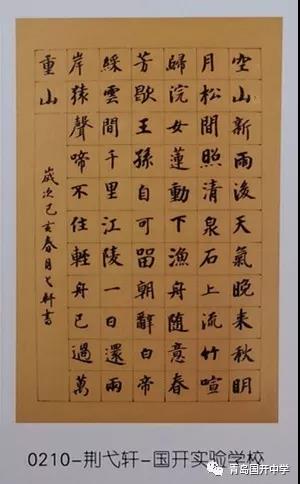 空山新雨後天氣晚来秋明
月松間照清泉石上流竹喧
歸浣女蓮動下漁舟随意春
芳歇王孫自可留朝辭白帝
綵雲間千里江陵一日還兩
岸猿聲啼不住輕舟已過萬
重山
歲次己亥春月弋軒書
0210-荆弋轩-国开实验学校
青岛国开中学